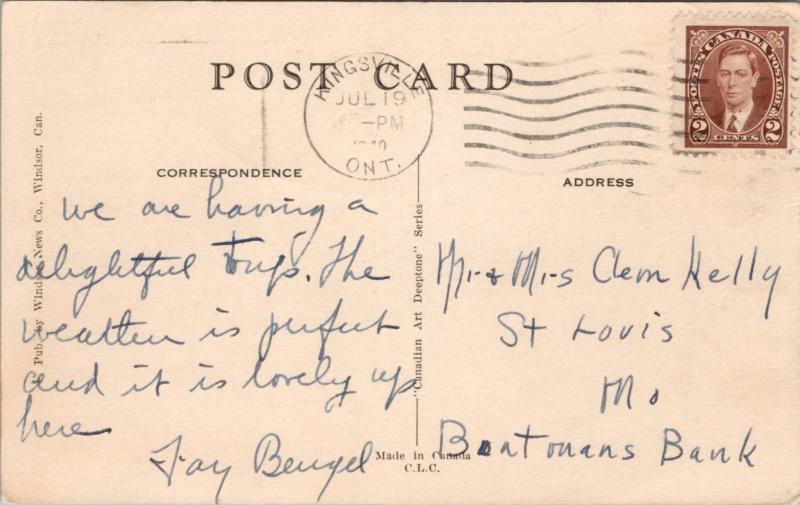 POST CARD
KINGSVILLE
JUL 19
-PM
1940
ONT.
POSTES CANADA POSTAGE
2 CENTS 2
CORRESPONDENCE
ADDRESS
We are having a
delightful trip. The
weather is perfect
and it is lovely up
here
Fay Bengel
Mr & Mrs Clem Kelly
St Louis
Mo
Boatmans Bank
Pub. by Windsor News Co., Windsor, Can.
"Canadian Art Deeptone" Series
Made in Canada
C.L.C.